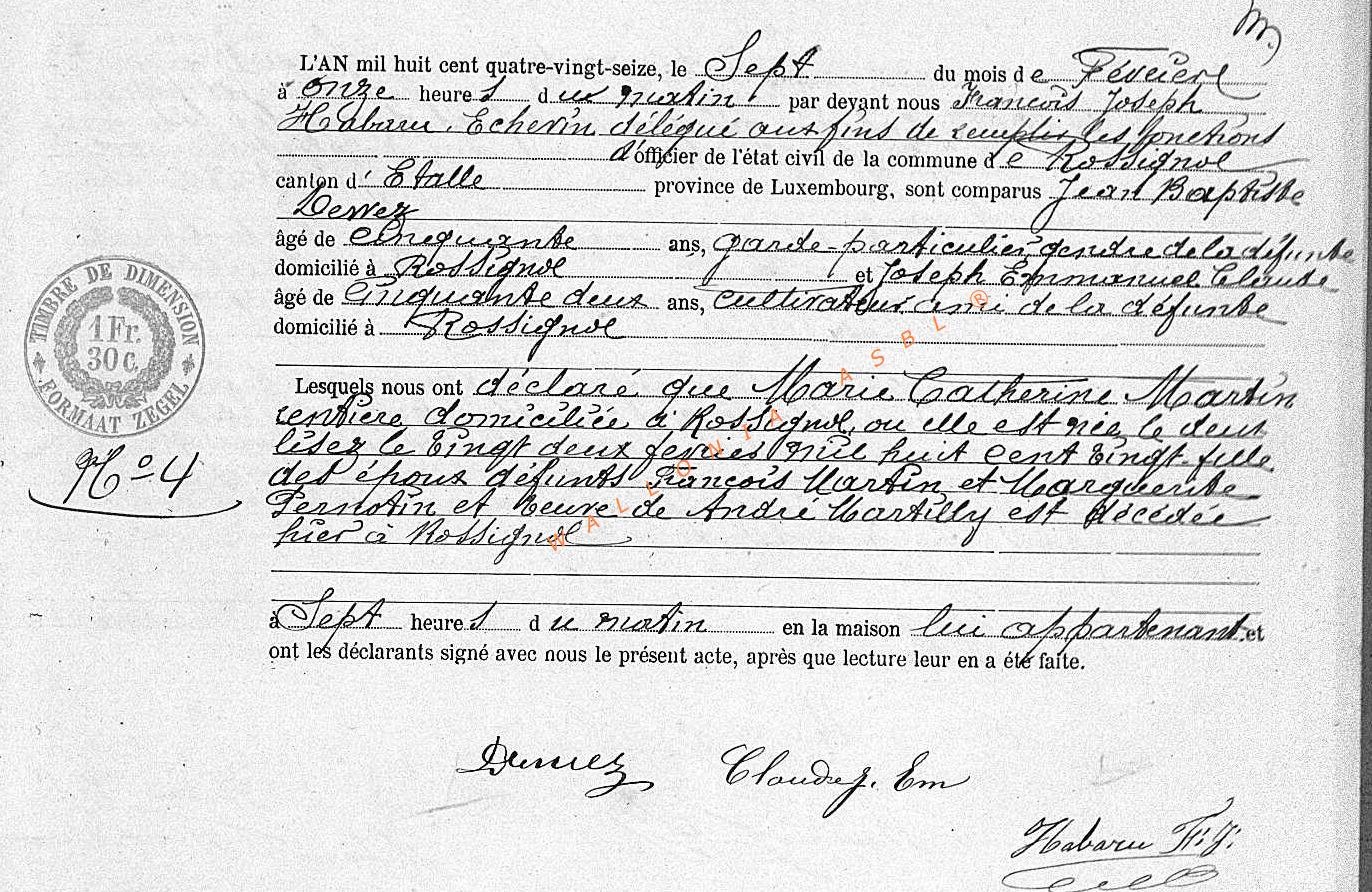 m.
L'AN mil huit cent quatre-vingt-seize, le Sept du mois de Février
à onze heures du matin par devant nous François Joseph
Habaru, Echevin délégué aux fins de remplir les fonctions
d'officier de l'état civil de la commune de Rossignol
canton d' Etalle province de Luxembourg, sont comparus Jean Baptiste
Dewez
âgé de cinquante ans, garde-particulier, gendre de la défunte
domicilié à Rossignol et Joseph Emmanuel Claude
âgé de cinquante deux ans, cultivateur ami de la défunte
domicilié à Rossignol
Lesquels nous ont déclaré que Marie Catherine Martin
rentière domiciliée à Rossignol, ou elle est née le deux
lisez le vingt deux février mil huit cent vingt, fille
des époux défunts François Martin et Marguerite
Pernotin et veuve de André Martilly est décédée
hier à Rossignol
à Sept heures du matin en la maison lui appartenant et
ont les déclarants signé avec nous le présent acte, après que lecture leur en a été faite.
TIMBRE DE DIMENSION
1 Fr.
30 c.
FORMAAT ZEGEL
No 4
WALLONIA ASBL ®
Dewez Claude J. Em
Habaru F. J.